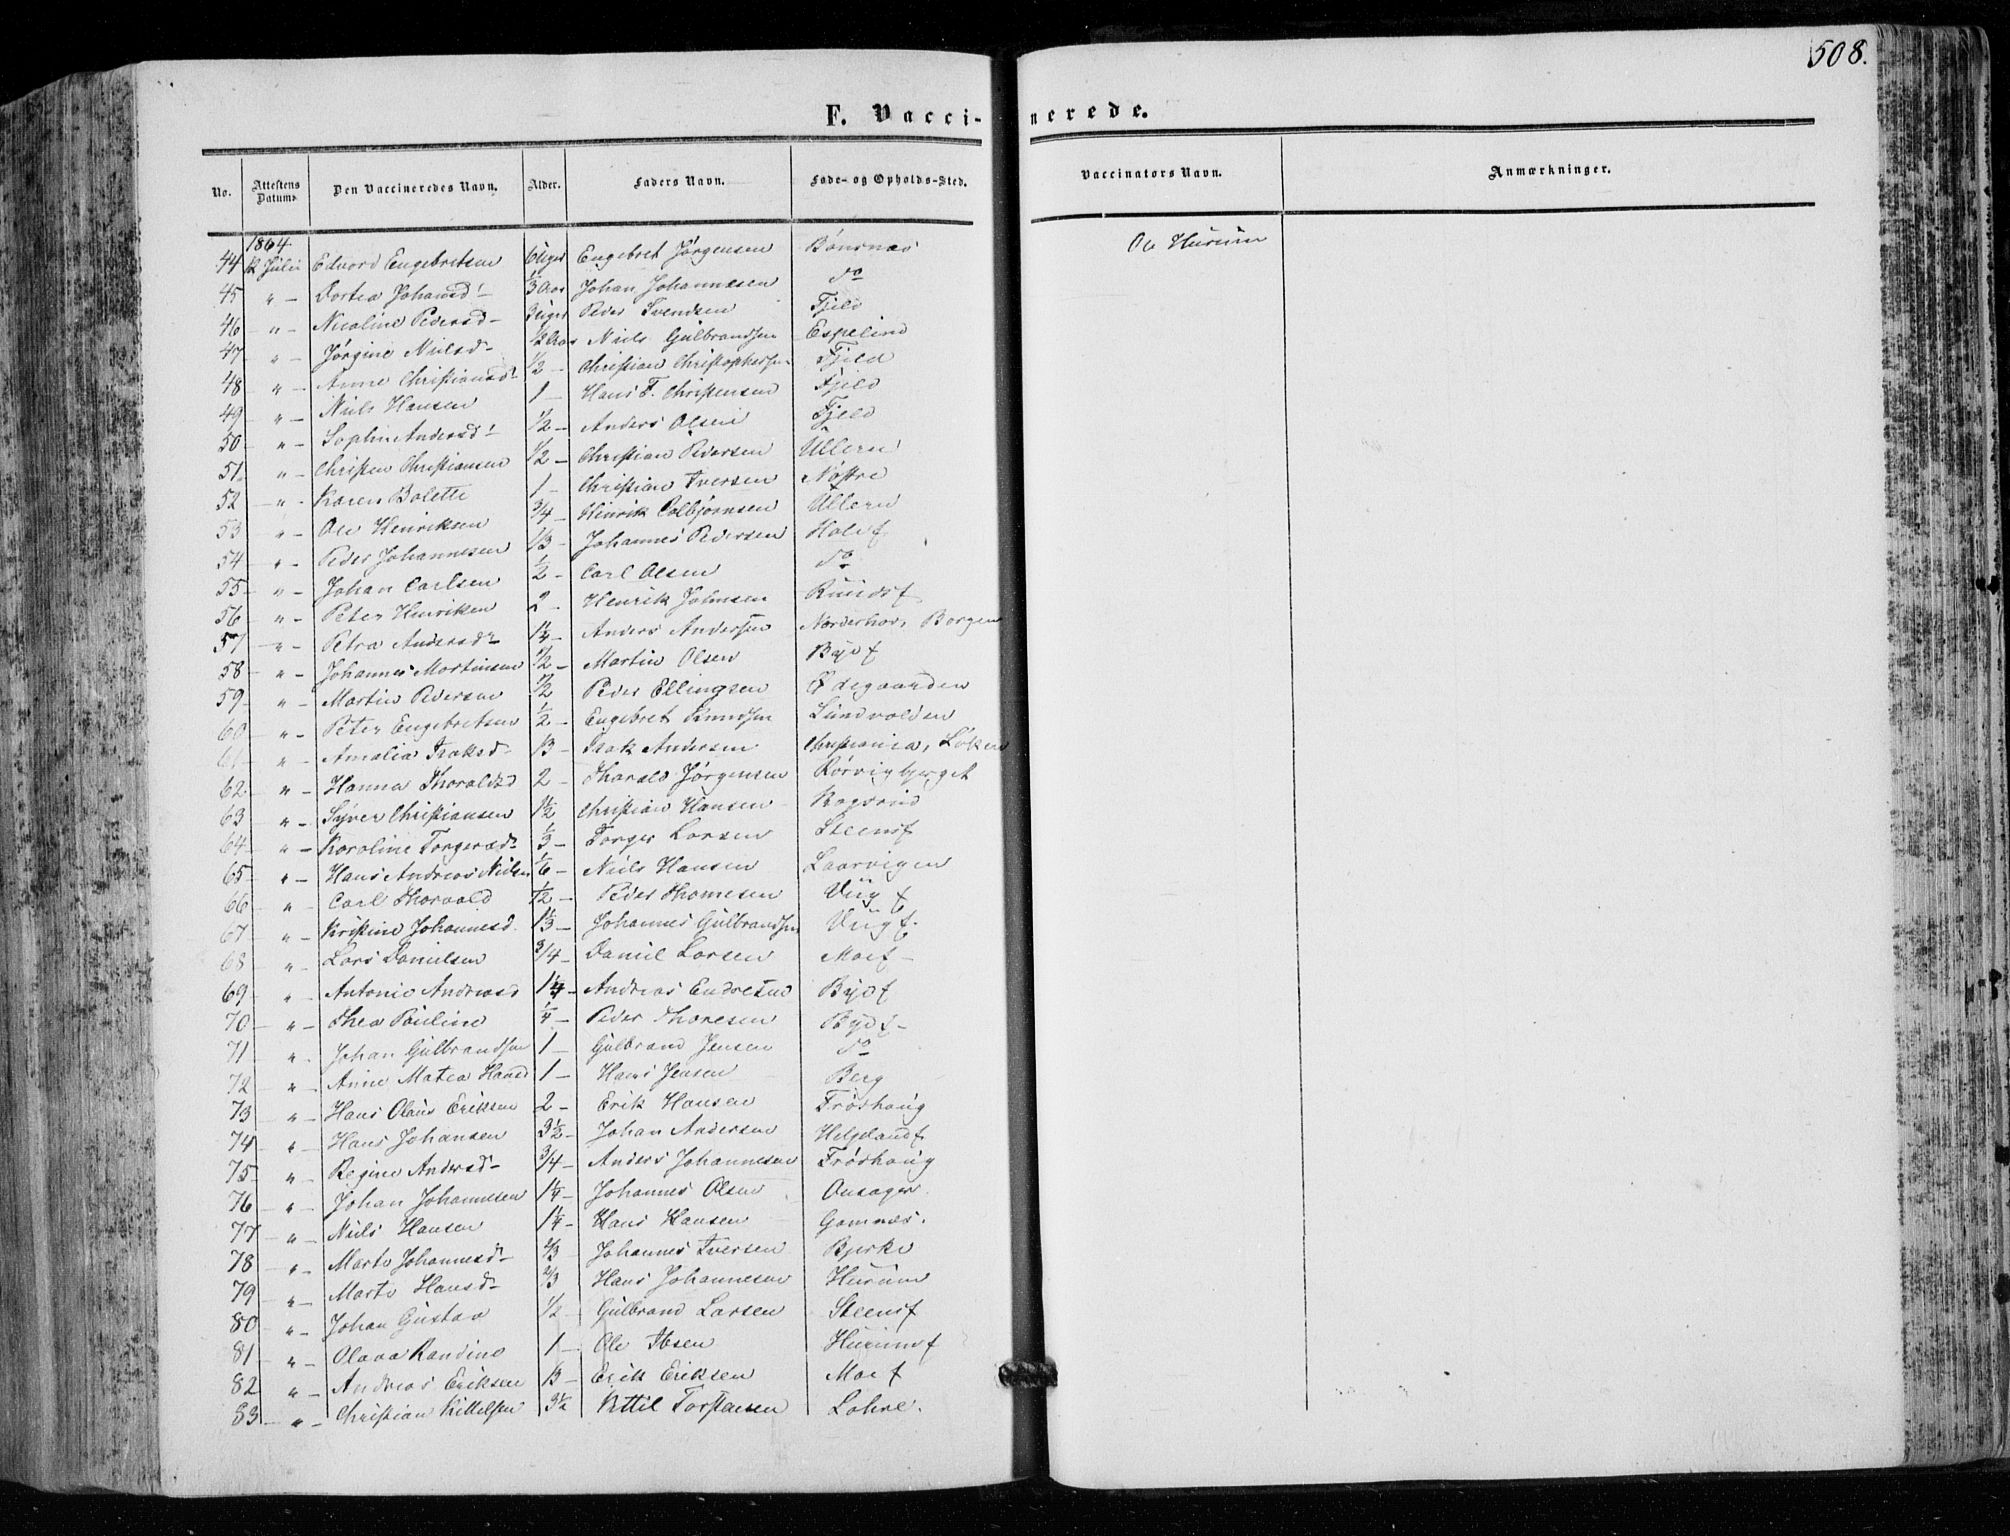 508.
F. Vaccinerede.
No. Attestens Datum. Den Vaccineredes Navn. Alder. Faders Navn. Føde- og Opholds-Sted. Vaccinators Navn. Anmærkninger.
1864
44 Juli Edvard Engebretsen 6 Uger Engebret Jørgensen Bønsnæs Ole Hurum
45 " - Dortea Johansd 1/3 Aar Johan Johannesen do
46 - " - Nicoline Pedersd- 3 Uger Peder Svendsen Fjeld
47 " Jørgine Nielsd- 1/2 Aar Niels Gulbrandsen Espelind
48 " - Anne Christiansd- 1/2 - Christian Christophersen Fjeld
49 " - Niels Hansen 1 - Hans F. Christensen Fjeld
50 - " - Sophie Andersd- 1/2 - Anders Olsen Fjeld
51 " - Christen Christiansen 1/2 - Christian Pedersen Ullern
52 - " - Karen Bolette 1 - Christian Iversen Nøstre
53 " - Ole Henriksen 3/4 - Henrik Colbjørnsen Ullern
54 - " - Peder Johannesen 1/3 - Johannes Pedersen Hole f
55 - " - Johan Carlsen 1/2 - Carl Olsen do
56 - " - Peter Henriksen 2 - Henrik Johnsen Ruudsf
57 - " - Petra Andersd- 1 1/4 - Anders Andersen Norderhov, Borgen
58 - " - Johannes Martinsen 1/2 - Martin Olsen Byef
59 - " - Martin Pedersen 1/2 Peder Ellingsen Ødegaarden
60 - " - Peter Engebretsen 1/2 - Engebret Knudsen Sundvolden
61 - " - Amalia Isaksd- 1/3 - Isak Andersen Christiania, Løken
62 - " - Hanna Thoraldsd 2 - Thorald Jørgensen Rørvigbjerget
63 - " - Syver Christiansen 1 1/2 Christian Hansen
64 - " - Karoline Torgersd- 1/3 - Torger Larsen Steensf
65 - " - Hans Andreas Nielsen 1/6 - Niels Hansen Laarvigen
66 - " Carl Thorvald 1/2 - Peder Thomesen Viig f
67 - " Kristine Johannesd. 1 1/3 - Johannes Gulbrandsen Viig f.
68 - " Lars Danielsen 3/4 - Daniel Larsen Moe f -
69 - " - Antonie Andreasd 1 1/4 - Andreas Endresen Byef
70 - " - Thea Pauline 1/4 - Peder Thoresen Byef -
71 " - Johan Gulbrandsen 1 - Gulbrand Jensen do
72 - " - Anne Matea Hansd 1 - Hans Jensen Berg
73 - " - Hans Olaus Eriksen 2 - Erik Hansen Frøshaug
74 - " - Hans Johansen 3 1/2 - Johan Andersen Helgelandf
75 - " - Regine Andersd- 3/4 - Anders Johannesen Frøshaug
76 - " - Johan Johannesen 1 1/4 - Johannes Olsen Onsager
77 - " - Niels Hansen 1 1/4 - Hans Hansen Gomnæs.
78 - " - Marte Johannesd- 2/3 Johannes Iversen Bjerke
79 - " - Marte Hansd- 2/3 Hans Johannesen Hurum
80 - " - Johan Gustav 1/2 - Gulbrand Larsen Steensf
81 - " - Olava Randine 1 - Ole Ibsen Hurumf
82 " - Andreas Eriksen 1/3 - Erik Eriksen Moe f
83 - " - Christian Kittelsen 3 1/2 Kittil Torstensen Lohre.